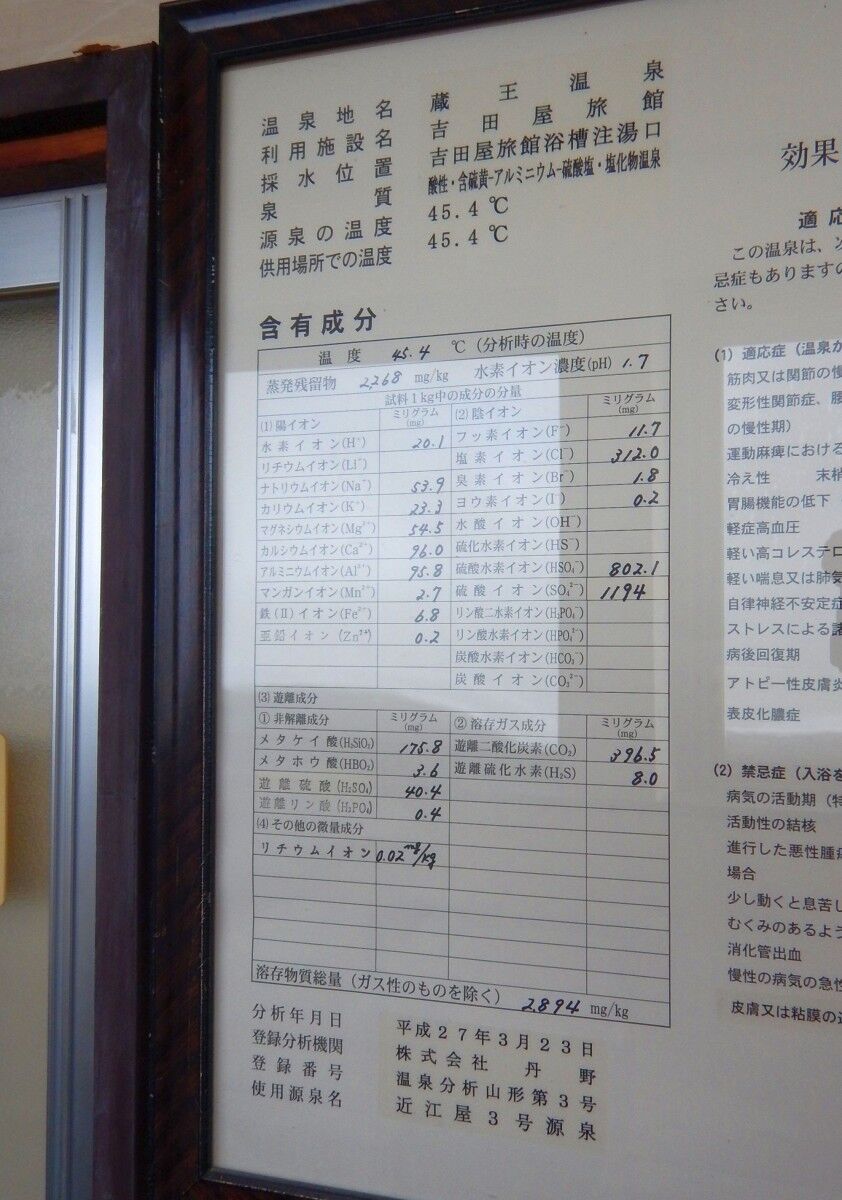 温泉地名 蔵王温泉
利用施設名 吉田屋旅館
採水位置 吉田屋旅館浴槽注湯口
泉質 酸性・含硫黄-アルミニウム-硫酸塩・塩化物温泉
源泉の温度 45.4℃
供用場所での温度 45.4℃
含有成分
温度 45.4 ℃(分析時の温度)
蒸発残留物 2,268 mg/kg 水素イオン濃度(pH) 1.7
試料1kg中の成分の分量
(1)陽イオン ミリグラム(mg) (2)陰イオン ミリグラム(mg)
水素イオン(H⁺) 20.1 フッ素イオン(F⁻) 11.7
リチウムイオン(Li⁺) 塩素イオン(Cl⁻) 312.0
ナトリウムイオン(Na⁺) 53.9 臭素イオン(Br⁻) 1.8
カリウムイオン(K⁺) 23.3 ヨウ素イオン(I⁻) 0.2
マグネシウムイオン(Mg²⁺) 54.5 水酸イオン(OH⁻)
カルシウムイオン(Ca²⁺) 96.0 硫化水素イオン(HS⁻)
アルミニウムイオン(Al³⁺) 95.8 硫酸水素イオン(HSO₄⁻) 802.1
マンガンイオン(Mn²⁺) 2.7 硫酸イオン(SO₄²⁻) 1194
鉄(II)イオン(Fe²⁺) 6.8 リン酸二水素イオン(H₂PO₄⁻)
亜鉛イオン(Zn²⁺) 0.2 リン酸水素イオン(HPO₄²⁻)
炭酸水素イオン(HCO₃⁻)
炭酸イオン(CO₃²⁻)
(3)遊離成分
①非解離成分 ミリグラム(mg) ②溶存ガス成分 ミリグラム(mg)
メタケイ酸(H₂SiO₃) 175.8 遊離二酸化炭素(CO₂) 396.5
メタホウ酸(HBO₂) 3.6 遊離硫化水素(H₂S) 8.0
遊離硫酸(H₂SO₄) 40.4
遊離リン酸(H₃PO₄) 0.4
(4)その他の微量成分
リチウムイオン 0.02mg/kg
溶存物質総量(ガス性のものを除く) 2,894 mg/kg
分析年月日 平成27年3月23日
登録分析機関 株式会社 丹野
登録番号 温泉分析山形第3号
使用源泉名 近江屋3号源泉
効果
適応
この温泉は、
忌症もありますの
さい。
(1) 適応症(温泉か
筋肉又は関節の慢
変形性関節症、腰
の慢性期)
運動麻痺における
冷え性 末梢
胃腸機能の低下
軽症高血圧
軽い高コレステロ
軽い喘息又は肺気
自律神経不安定症
ストレスによる諸
病後回復期
アトピー性皮膚炎
表皮化膿症
(2) 禁忌症(入浴を
病気の活動期(特
活動性の結核
進行した悪性腫瘍
場合
少し動くと息苦し
むくみのあるよう
消化管出血
慢性の病気の急性
皮膚又は粘膜の過